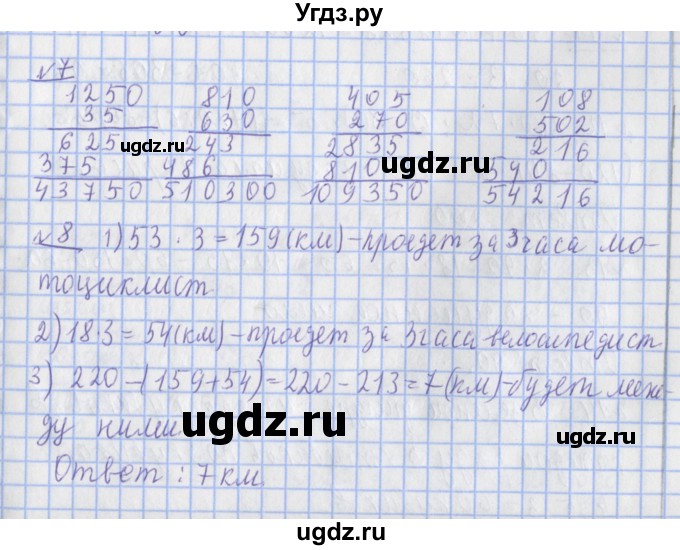 Угдз.ру
№7
1250 810 405 108
35 630 270 502
625 243 2835 216
375 486 810 540
43750 510300 109350 54216
№8 1) 53 · 3 = 159 (км) – проедет за 3 часа мо-
тоциклист
2) 18·3 = 54 (км) – проедет за 3 часа велосипедист
3) 220 – (159 + 54) = 220 – 213 = 7 (км) – будет меж-
ду ними
Ответ : 7 км.
ugdz.ru
ugdz.ru
ugdz.ru
ugdz.ru
ugdz.ru
ugdz.ru
ugdz.ru
ugdz.ru